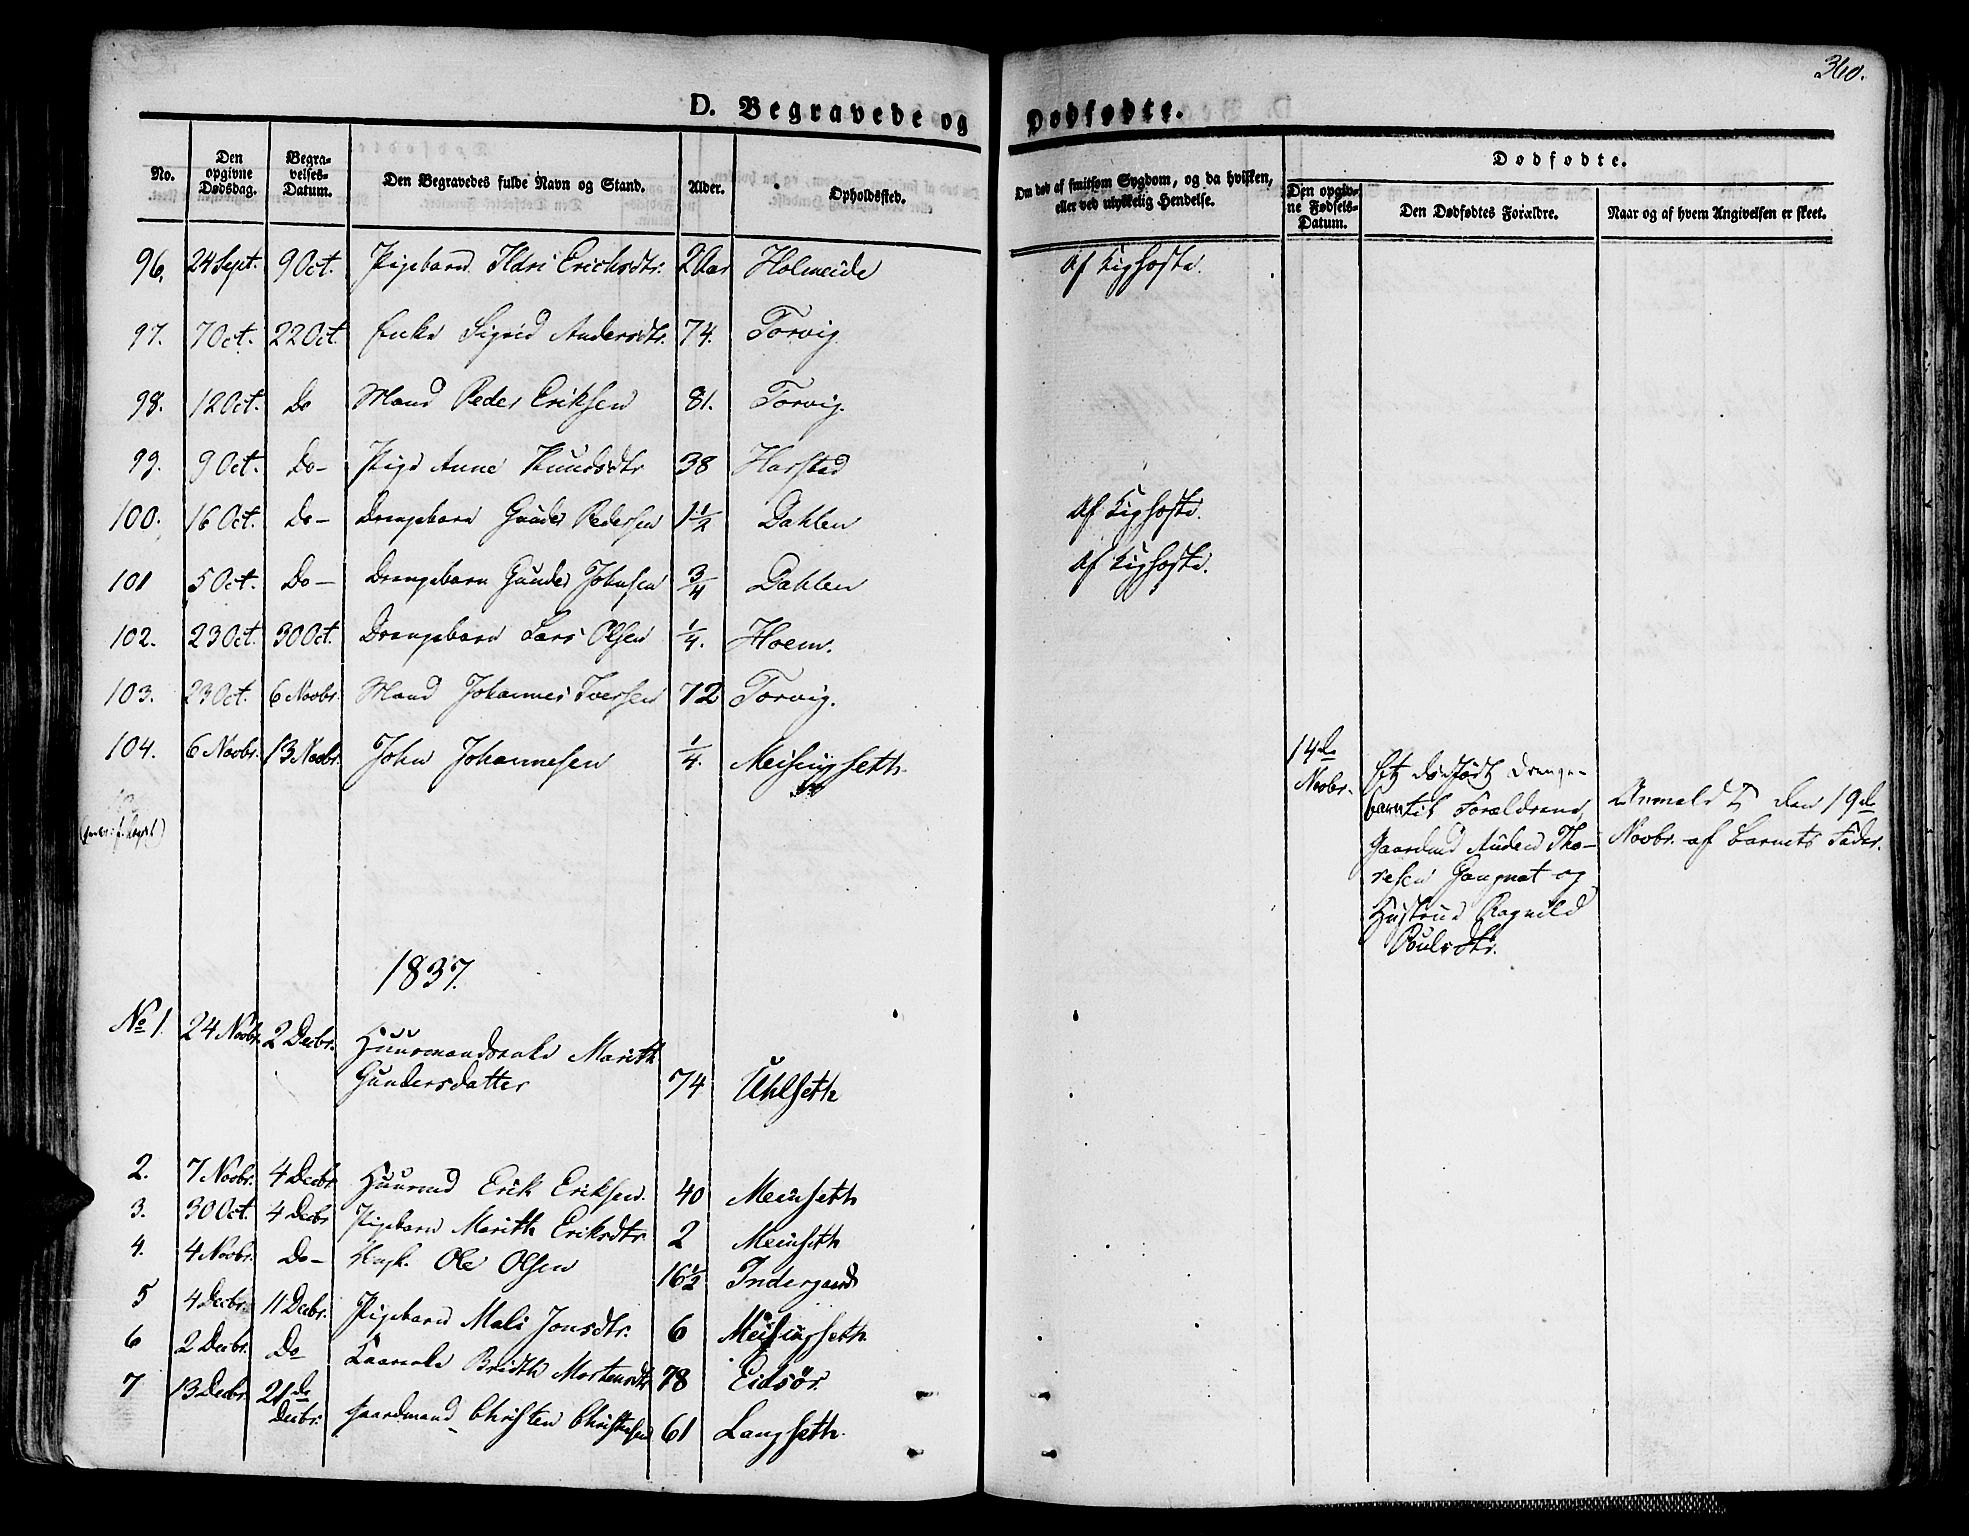 360.
D. Begravede og Dødfødte.
No. Den opgivne Dødsdag. Begravelses-Datum. Den Begravedes fulde Navn og Stand. Alder. Opholdssted. Om død af smitsom Sygdom, og da hvilken, eller ved ulykkelig Hendelse. Dødfødte.
Den opgivne Fødsels-Datum. Den Dødfødtes Forældre. Naar og af hvem Angivelsen er skeet.
96. 24 Sept. 9 Oct. Pigebarn Ildri Erichsdtr. 2 Aar Holmeide Af Kighoste.
97. 7 Oct. 22 Oct. Enke Sigrid Andersdtr. 74. Torvig
98. 12 Oct. Do Mand Peder Eriksen 81. Torvig.
99. 9 Oct. Do- Pige Anne Knudsdtr 38 Harstad
100. 16 Oct. Do- Drengebarn Gunder Pedersen 1½ Dahlen Af Kighoste.
101 5 Oct. Do- Drengebarn Gunder Johnsen ¾ Dahlen Af Kighoste.
102. 23 Oct. 30 Oct. Drengebarn Lars Olsen ¼. Hoem.
103. 23 Oct. 6 Novbr. Mand Johannes Iversen 72 Torvig.
104. 6 Novbr. 13 Novbr. John Johannesen ¼. Meisingseth.
14de Novbr.
Et dødfødt Drenge-
barn til Forældrene,
Gaardmd Auden Tho-
resen Gangnat og
Hustrue Ragnild
Poulsdtr.
Anmeldt den 19de
Novbr. af Barnets Fader.
1837.
No 1. 24 Novbr. 2 Decbr. Huusmandsenke Marith
Gundersdatter 74 Uhlseth
2. 7 Novbr. 4 Decbr. Huusmd Erik Eriksen. 40 Meiuseth
3. 30 Oct. 4 Decbr Pigebarn Marith Eriksdtr 2 Meiuseth
4. 4 Novbr. Do- Ole Olsen 16½ Indergaard
5 4 Decbr. 11 Decbr. Pigebarn Mali Jonsdtr. 6 Meisingseth
6 2 Decbr. Do Brideth Mortensdtr 78 Eidsør.
7 13 Decbr. 21de Decbr. Gaardmand Christen Christensen 61 Langseth.